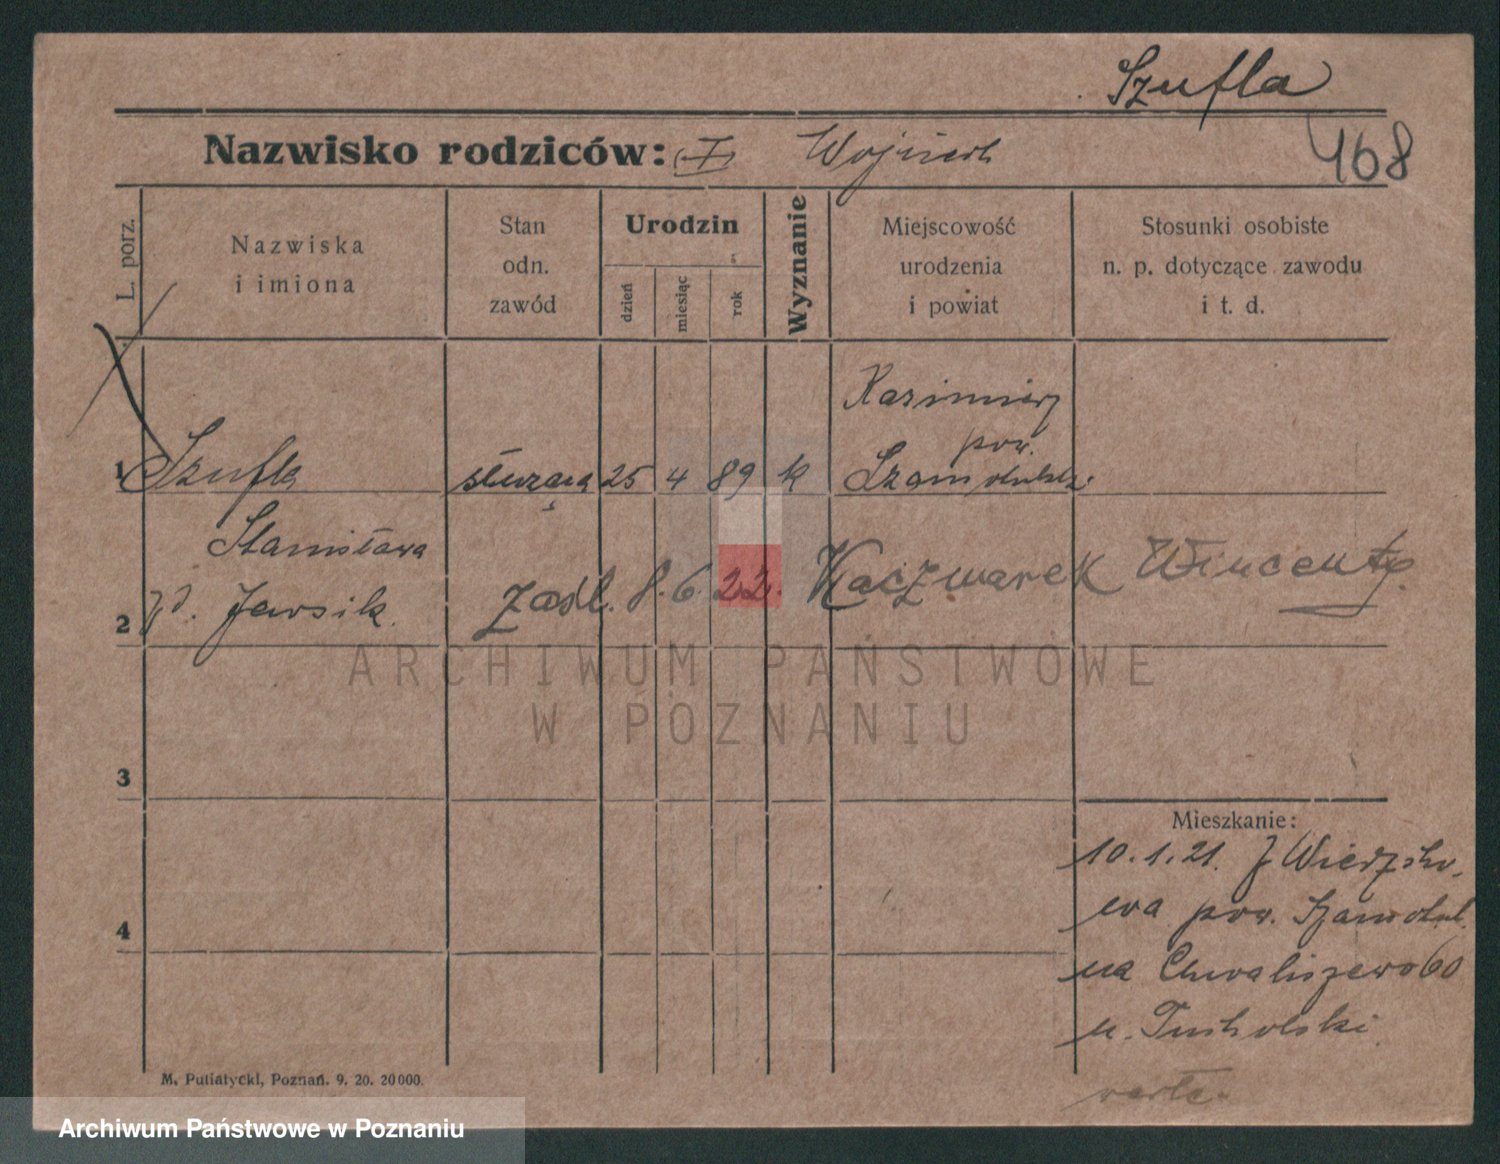 Szufla
Nazwisko rodziców: I Wojciech
468
L. porz.
Nazwiska
i imiona
Stan
odn.
zawód
Urodzin
dzień
miesiąc
rok
Wyznanie
Miejscowość
urodzenia
i powiat
Stosunki osobiste
n. p. dotyczące zawodu
i t. d.
Kazimierz
pow.
1 Szufla służąca 25 4 89 k
Stanisława
2 Jarosik zaśl. 8.6.22. Kaczmarek Wincenty
ARCHIWUM PAŃSTWOWE
W POZNANIU
3
Mieszkanie:
10.1.21. z
4
pow. Szamotul.
na Chwaliszewo 60
u. Tucholski
M. Putiatycki, Poznań. 9. 20. 20000.
Archiwum Państwowe w Poznaniu